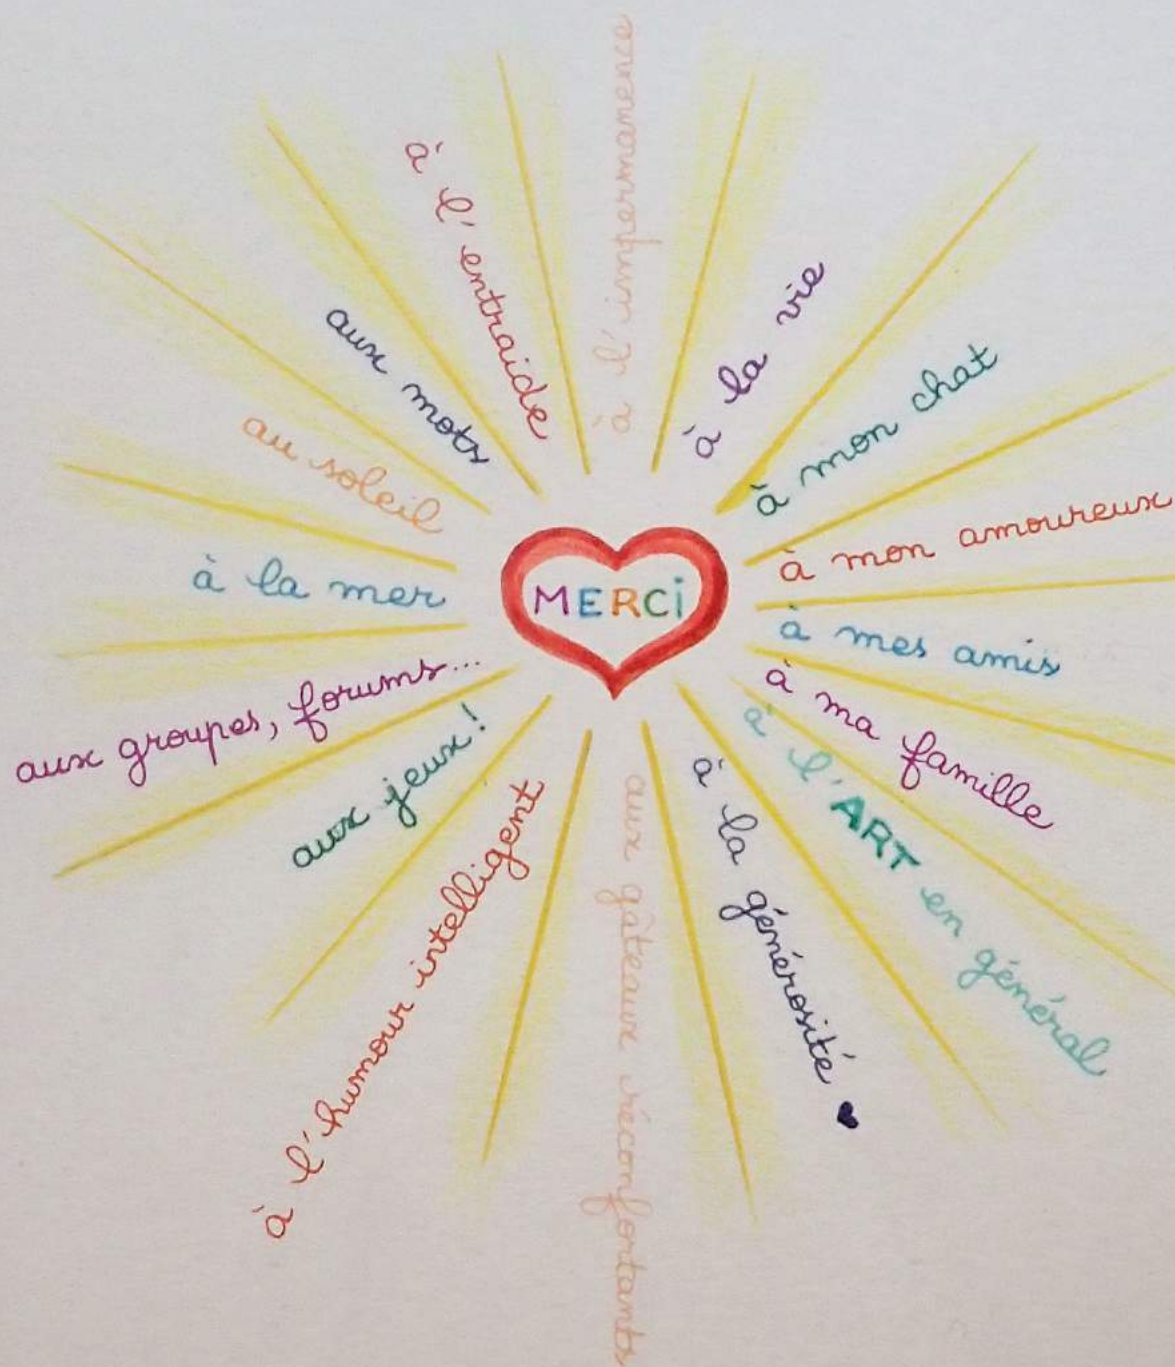 MERCi
à l'impermanence
à la vie
à mon chat
à mon amoureux
à mes amis
à ma famille
à l'ART en général
à la générosité ♥
aux gâteaux réconfortants
à l'humour intelligent
aux jeux!
aux groupes, forums...
à la mer
au soleil
aux mots
à l'entraide